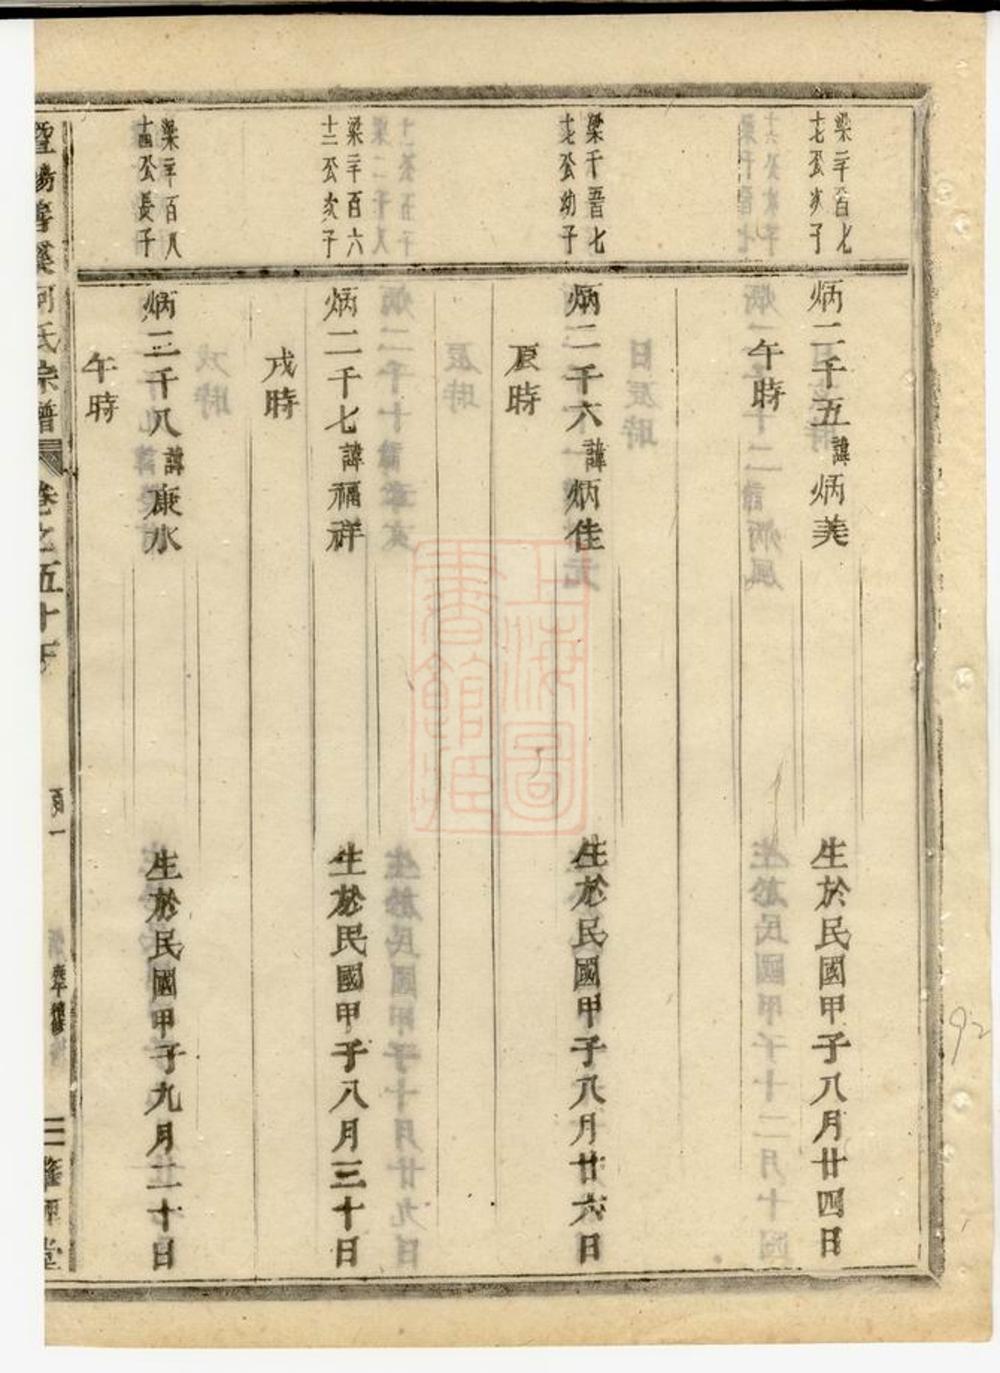 梁二千百七
十七公次子
炳二千五諱炳美
生於民國甲子八月廿四日
午時
梁千百七
十七公幼子
炳二千六諱炳佳
生於民國甲子八月廿六日
辰時
梁二千百六
十二公次子
炳二千七諱福祥
生於民國甲子八月三十日
戌時
梁二千百八
十四公長子
炳二千八諱康水
生於民國甲子九月二十日
午時
氏宗譜
卷之五十
上海圖
書館藏
92